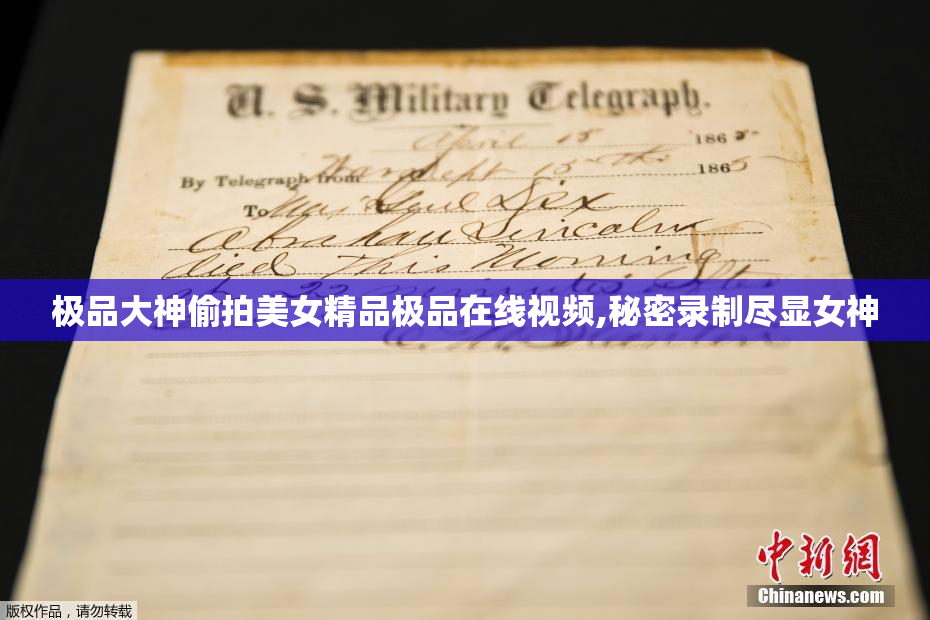 U. S. Military Telegraph.
April 15 1865
By Telegraph from War Dept 15th 1865
To Maj Genl Dix
Abraham Lincoln
died This Morning
at 22 minutes after
极品大神偷拍美女精品极品在线视频,秘密录制尽显女神
E. M. Stanton
中新网
Chinanews.com
版权作品，请勿转载